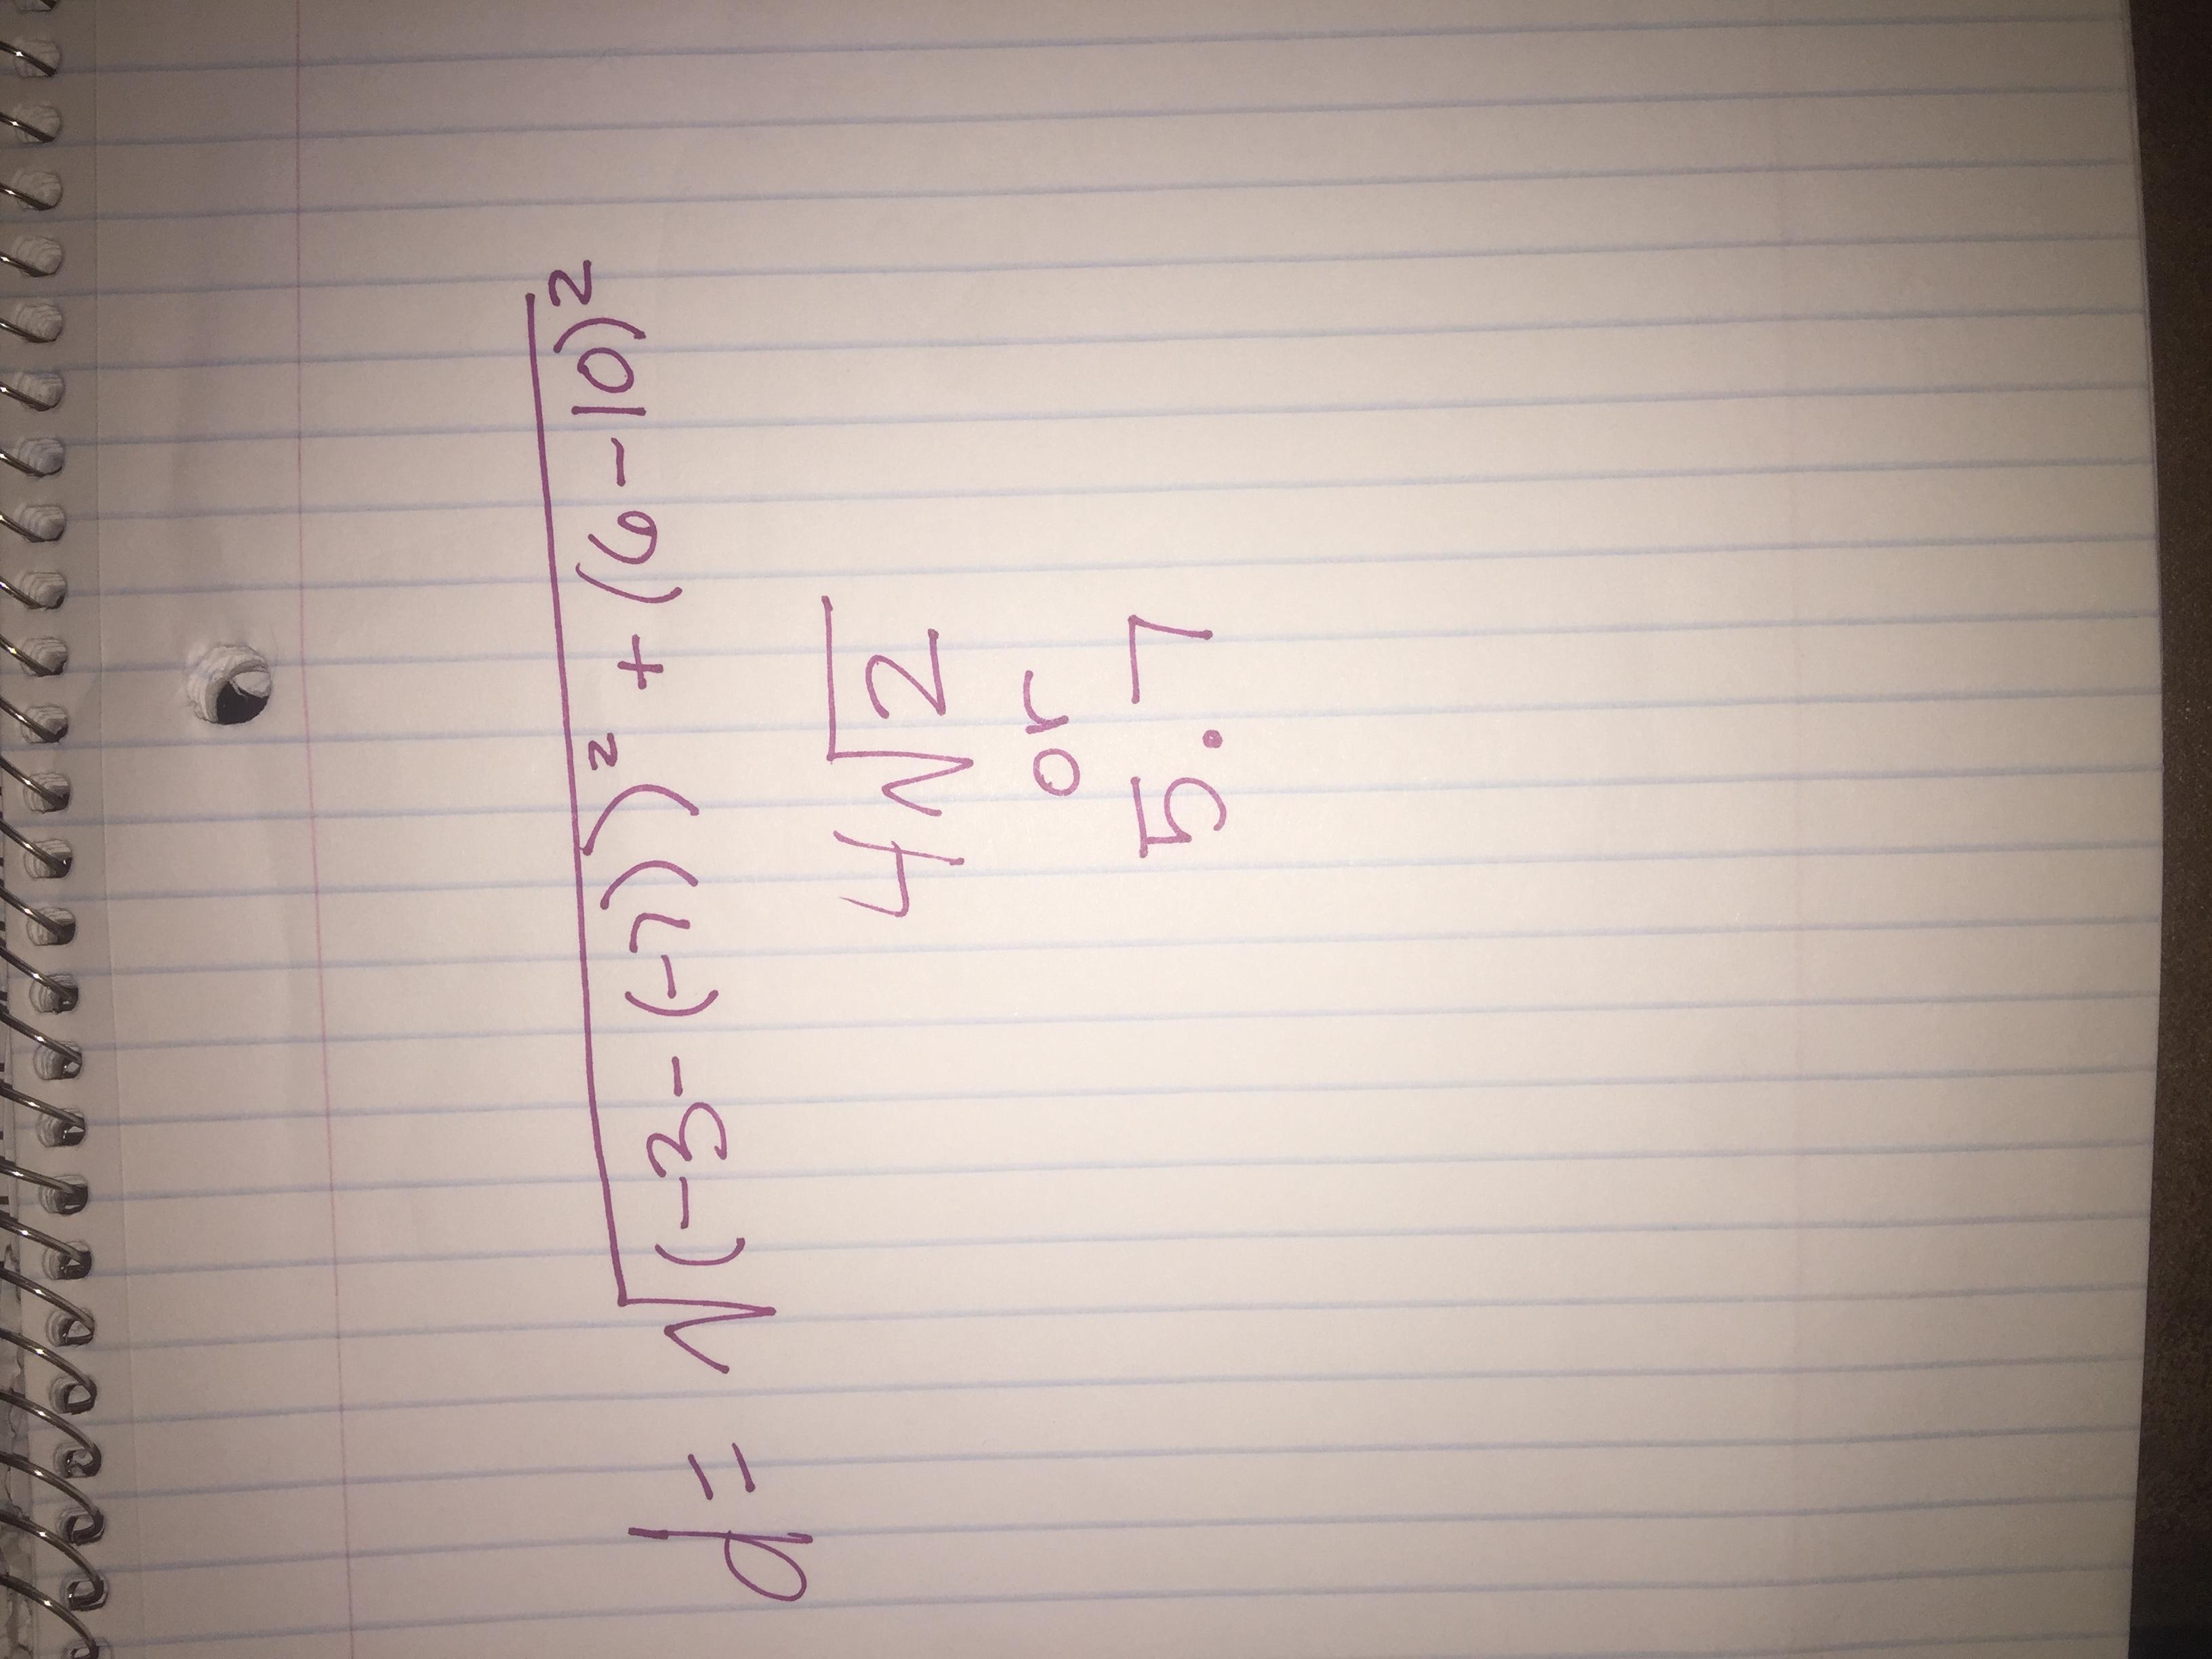 d = √(-3-(-7))² + (6-10)²
4√2
or
5.7